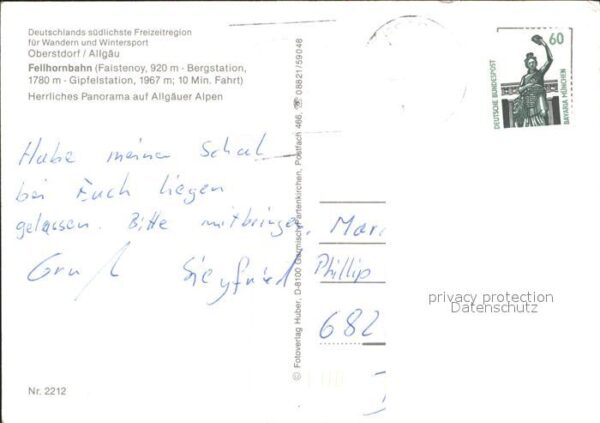 Deutschlands südlichste Freizeitregion
für Wandern und Wintersport
Oberstdorf / Allgäu
Fellhornbahn (Faistenoy, 920 m - Bergstation,
1780 m - Gipfelstation, 1967 m; 10 Min. Fahrt)
Herrliches Panorama auf Allgäuer Alpen
Habe meinen Schal
bei Euch liegen
gelassen. Bitte mitbringen.
Gruß Siegfried
Nr. 2212
© Fotoverlag Huber, D-8100 Garmisch-Partenkirchen, Postfach 466, ☏ 08821/59048
60
DEUTSCHE BUNDESPOST
BAVARIA MÜNCHEN
Mari
Phillip
682
privacy protection
Datenschutz